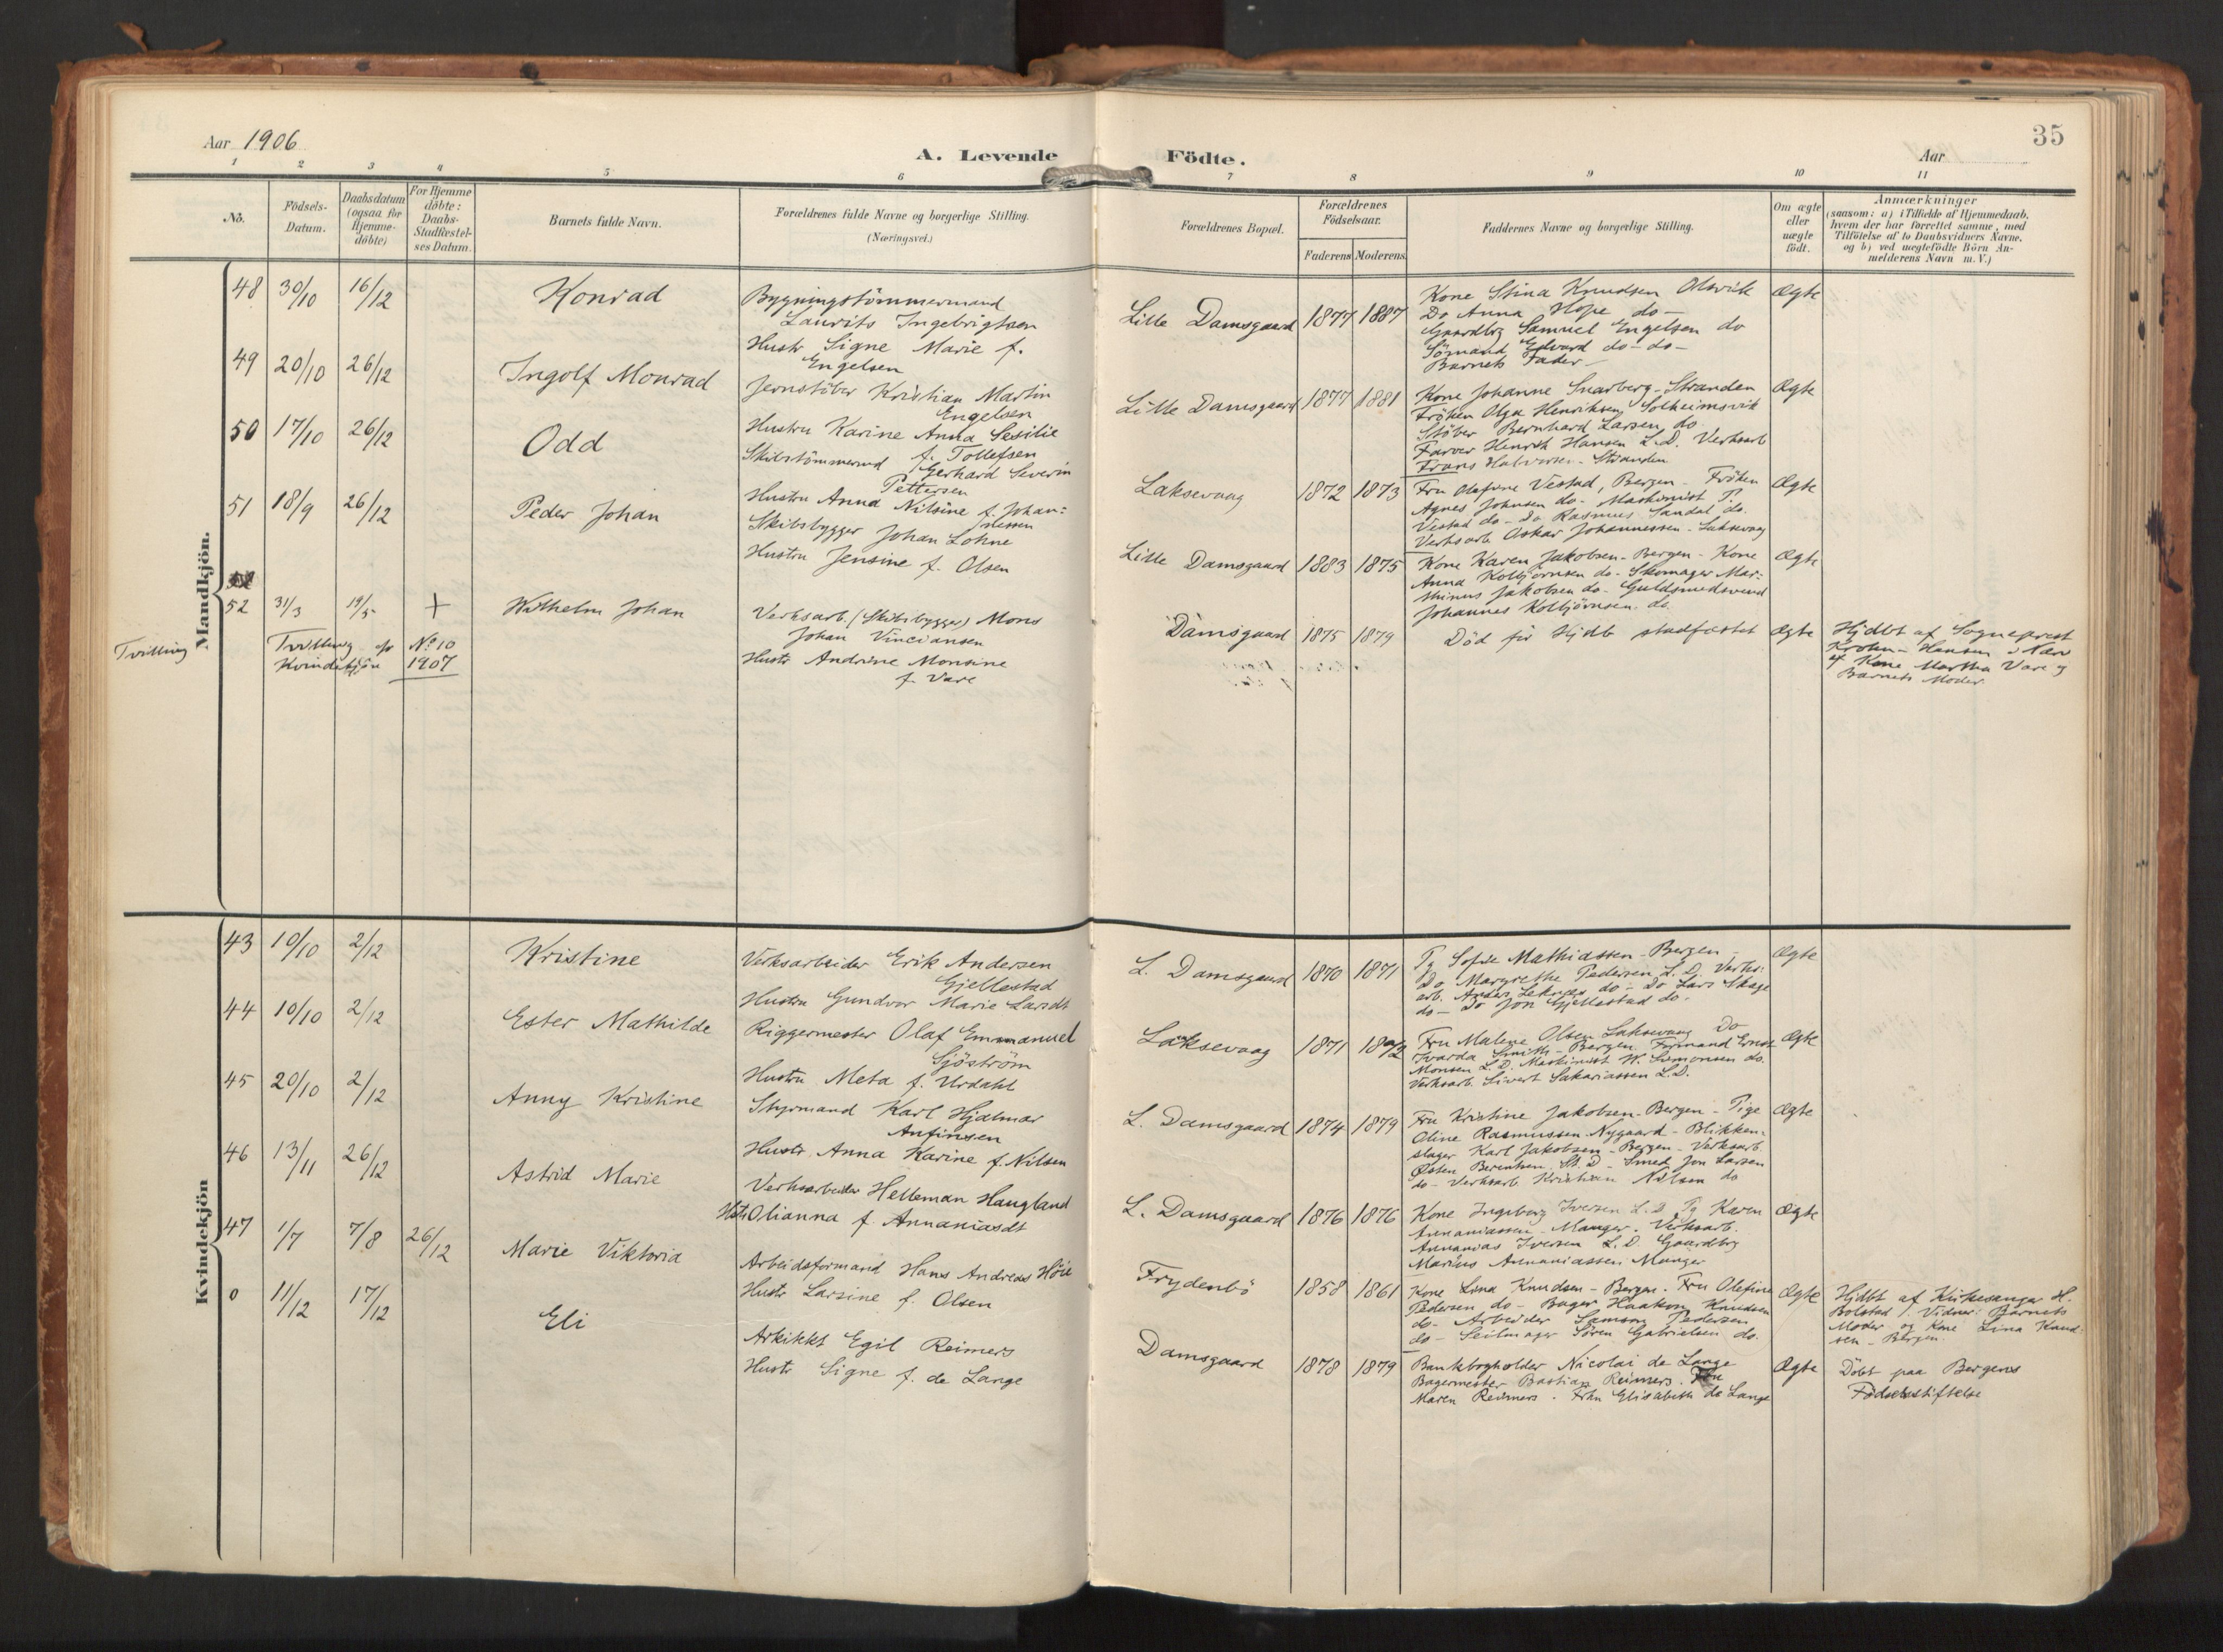 35
Aar 1906
A. Levende Födte.
Aar
1 2 3 4 5 6 7 8 9 10 11
No.
Födsels-
Datum.
Daabsdatum
(ogsaa for
Hjemme-
döbte)
For Hjemme
döbte:
Daabs-
Stadfæstel-
ses Datum.
Barnets fulde Navn.
Forældrenes fulde Navne og borgerlige Stilling.
(Næringsvei.)
Forældrenes Bopæl.
Forældrenes
Födselsaar.
Faderens Moderens
Faddernes Navne og borgerlige Stilling.
Om ægte
eller
uægte
födt.
Anmærkninger
(saasom: a) i Tilfælde af Hjemmedaab,
hvem der har forrettet samme, med
Tilföielse af to Daabsvidners Navne,
og b) ved uægtefödte Börn An-
melderens Navn m. V.)
Mandkjön.
48 30/10 16/12
Konrad
Bygningstömmermand
Laurits Ingebrigtsen
Hustr Signe Marie f.
Engelsen
Lille Damsgaard 1877 1887
Kone Stina Knudsen Olsvik
Do Anna Hope do —
Gaardbrg Samuel Engelsen do
Sömand Edvard do — do —
Barnets Fader —
Ægte
49 20/10 26/12
Ingolf Monrad
Jernstöber Kristian Martin
Engelsen
Hustru Karine Anna Sesilie
f. Tollefsen
Lille Damsgaard 1877 1881
Kone Johanne Snarberg - Stranden
Fröken Olga Henriksen, Solheimsvik
Stöber Bernhard Larsen do
Farver Henrik Hansen L. D. Verksarb
Frans Halvorsen - Stranden
Ægte
50 17/10 26/12
Odd
Skibstömmermd Gerhard Severin
Pettersen
Hustru Anna Nilsine f. Johan-
nessen
Laksevaag 1872 1873
Fru Olafine Vestad, Bergen - Fröken
Agnes Johnsen do - Maskinist P.
Vestad do - Do Rasmus Sandal do.
Verksarb Oskar Johannessen - Laksevaag
Ægte
51 18/9 26/12
Peder Johan
Skibsbygger Johan Lohne
Hustru Jensine f. Olsen
Lille Damsgaard 1883 1875
Kone Karen Jakobsen - Bergen - Kone
Anna Kolbjörnsen do - Skomager Mar-
thinus Jakobsen do - Guldsmedsvend
Johannes Kolbjörnsen. do.
Ægte
52 31/3 19/5 +
Wilhelm Johan
Verksarb. (Skibsbygger) Mons
Johan Vincentsen
Hustr Andrine Monsine
f. Vare
Damsgaard 1875 1879
Död för Hjdb stadfæstet
Ægte
Hjdbt af Sogneprest
Krohn-Hansen i Nærv
af Kone Martha Vare og
Barnets Moder.
Tvilling
Tvilling af No 10
Kvindekjön 1907
Kvindekjön
43 10/10 2/12
Kristine
Verksarbeider Erik Andersen
Gjellestad
Hustru Gundvor Marie Larsdt
L. Damsgaard 1870 1871
Pg Sofie Mathiassen - Bergen -
Do Margrethe Pedersen L. D. Verks-
arb. Anders Leknes do - Do Lars Skage
do - Do Jon Gjellestad do -
Ægte
44 10/10 2/12
Ester Mathilde
Riggermester Olaf Emmanuel
Sjöström
Hustru Meta f. Urdahl
Laksevaag 1871 1872
Fru Malene Olsen Laksevaag Do
Smith - Bergen Formand Ernst
Monsen L. D. Maskinist W. Simonsen do.
Verksarb. Sivert Sakariassen L. D.
Ægte
45 20/10 2/12
Anny Kristine
Styrmand Karl Hjalmar
Anfinsen
Hustr Anna Karine f. Nilsen
L. Damsgaard 1874 1879
Fru Kristine Jakobsen - Bergen - Pige
Oline Rasmussen Nygaard - Blikken-
slager Karl Jakobsen - Bergen - Verksarb.
Östen Berentsen St. D - Smed Jon Larsen
do - Verksarb Kristian Nilsen do
Ægte
46 13/11 26/12
Astrid Marie
Verksarbeider Helleman Haugland
Hstr Olianna f. Annaniasdt
L. Damsgaard 1876 1876
Kone Ingeborg Iversen L. D. Pg Karen
Annaniassen Manger. Verksarb.
Annanias Iversen L. D. Gaardbrg
Marius Annaniassen Manger
Ægte
47 1/7 7/8 26/12
Marie Viktoria
Arbeidsformand Hans Andreas Höie
Hustr Larsine f. Olsen
Frydenbö 1858 1861
Kone Lina Knudsen - Bergen. Fru Olefine
Pedersen do - Bager Haakon Knudsen
do - Arbeider Samson Pedersen
do - Seilmager Sören Gabrielsen do.
Ægte
Hjdbt af Kirkesanger H.
Bolstad / Vidner: Barnets
Moder og Kone Lina Knud-
sen - Bergen.
0 11/12 17/12
Eli
Arkitekt Egil Reimers
Hustr Signe f. de Lange
Damsgaard 1878 1879
Bankbogholder Nicolai de Lange
Bagermester Bastian Reimers. Fru
Maren Reimers. Frkn Elisabeth de Lange
Ægte
Döbt paa Bergens
Födselsstiftelse